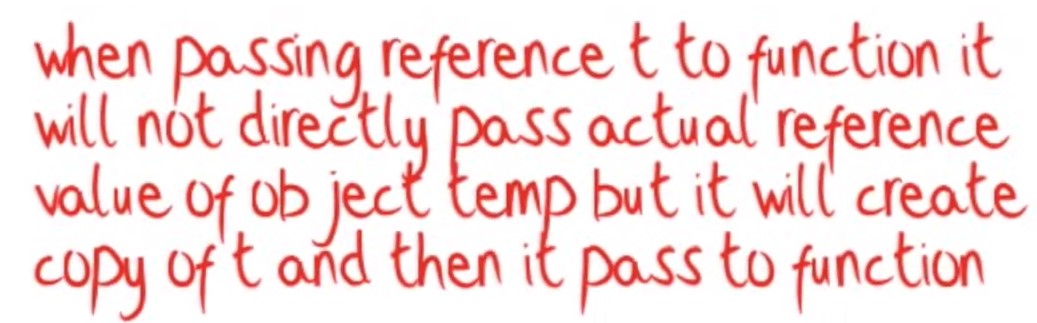 when passing reference t to function it
will not directly pass actual reference
value of ob ject temp but it will create
copy of t and then it pass to function